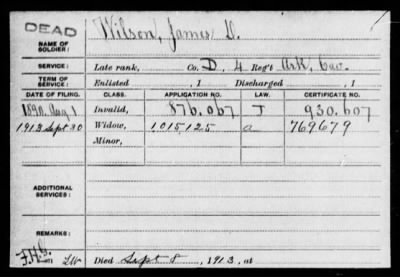 DEAD
NAME OF SOLDIER: Wilson, James D.
SERVICE: Late rank, Co. D, 4 Reg't Ark. Cav.
TERM OF SERVICE: Enlisted , 1 Discharged , 1
DATE OF FILING. CLASS. APPLICATION NO. LAW. CERTIFICATE NO.
1890. Aug 1 Invalid, 876.067 J 930.607
1913 Sept 30 Widow, 1015125 a 769679
Minor,
ADDITIONAL SERVICES:
REMARKS:
Died Sept 8, 1913, at